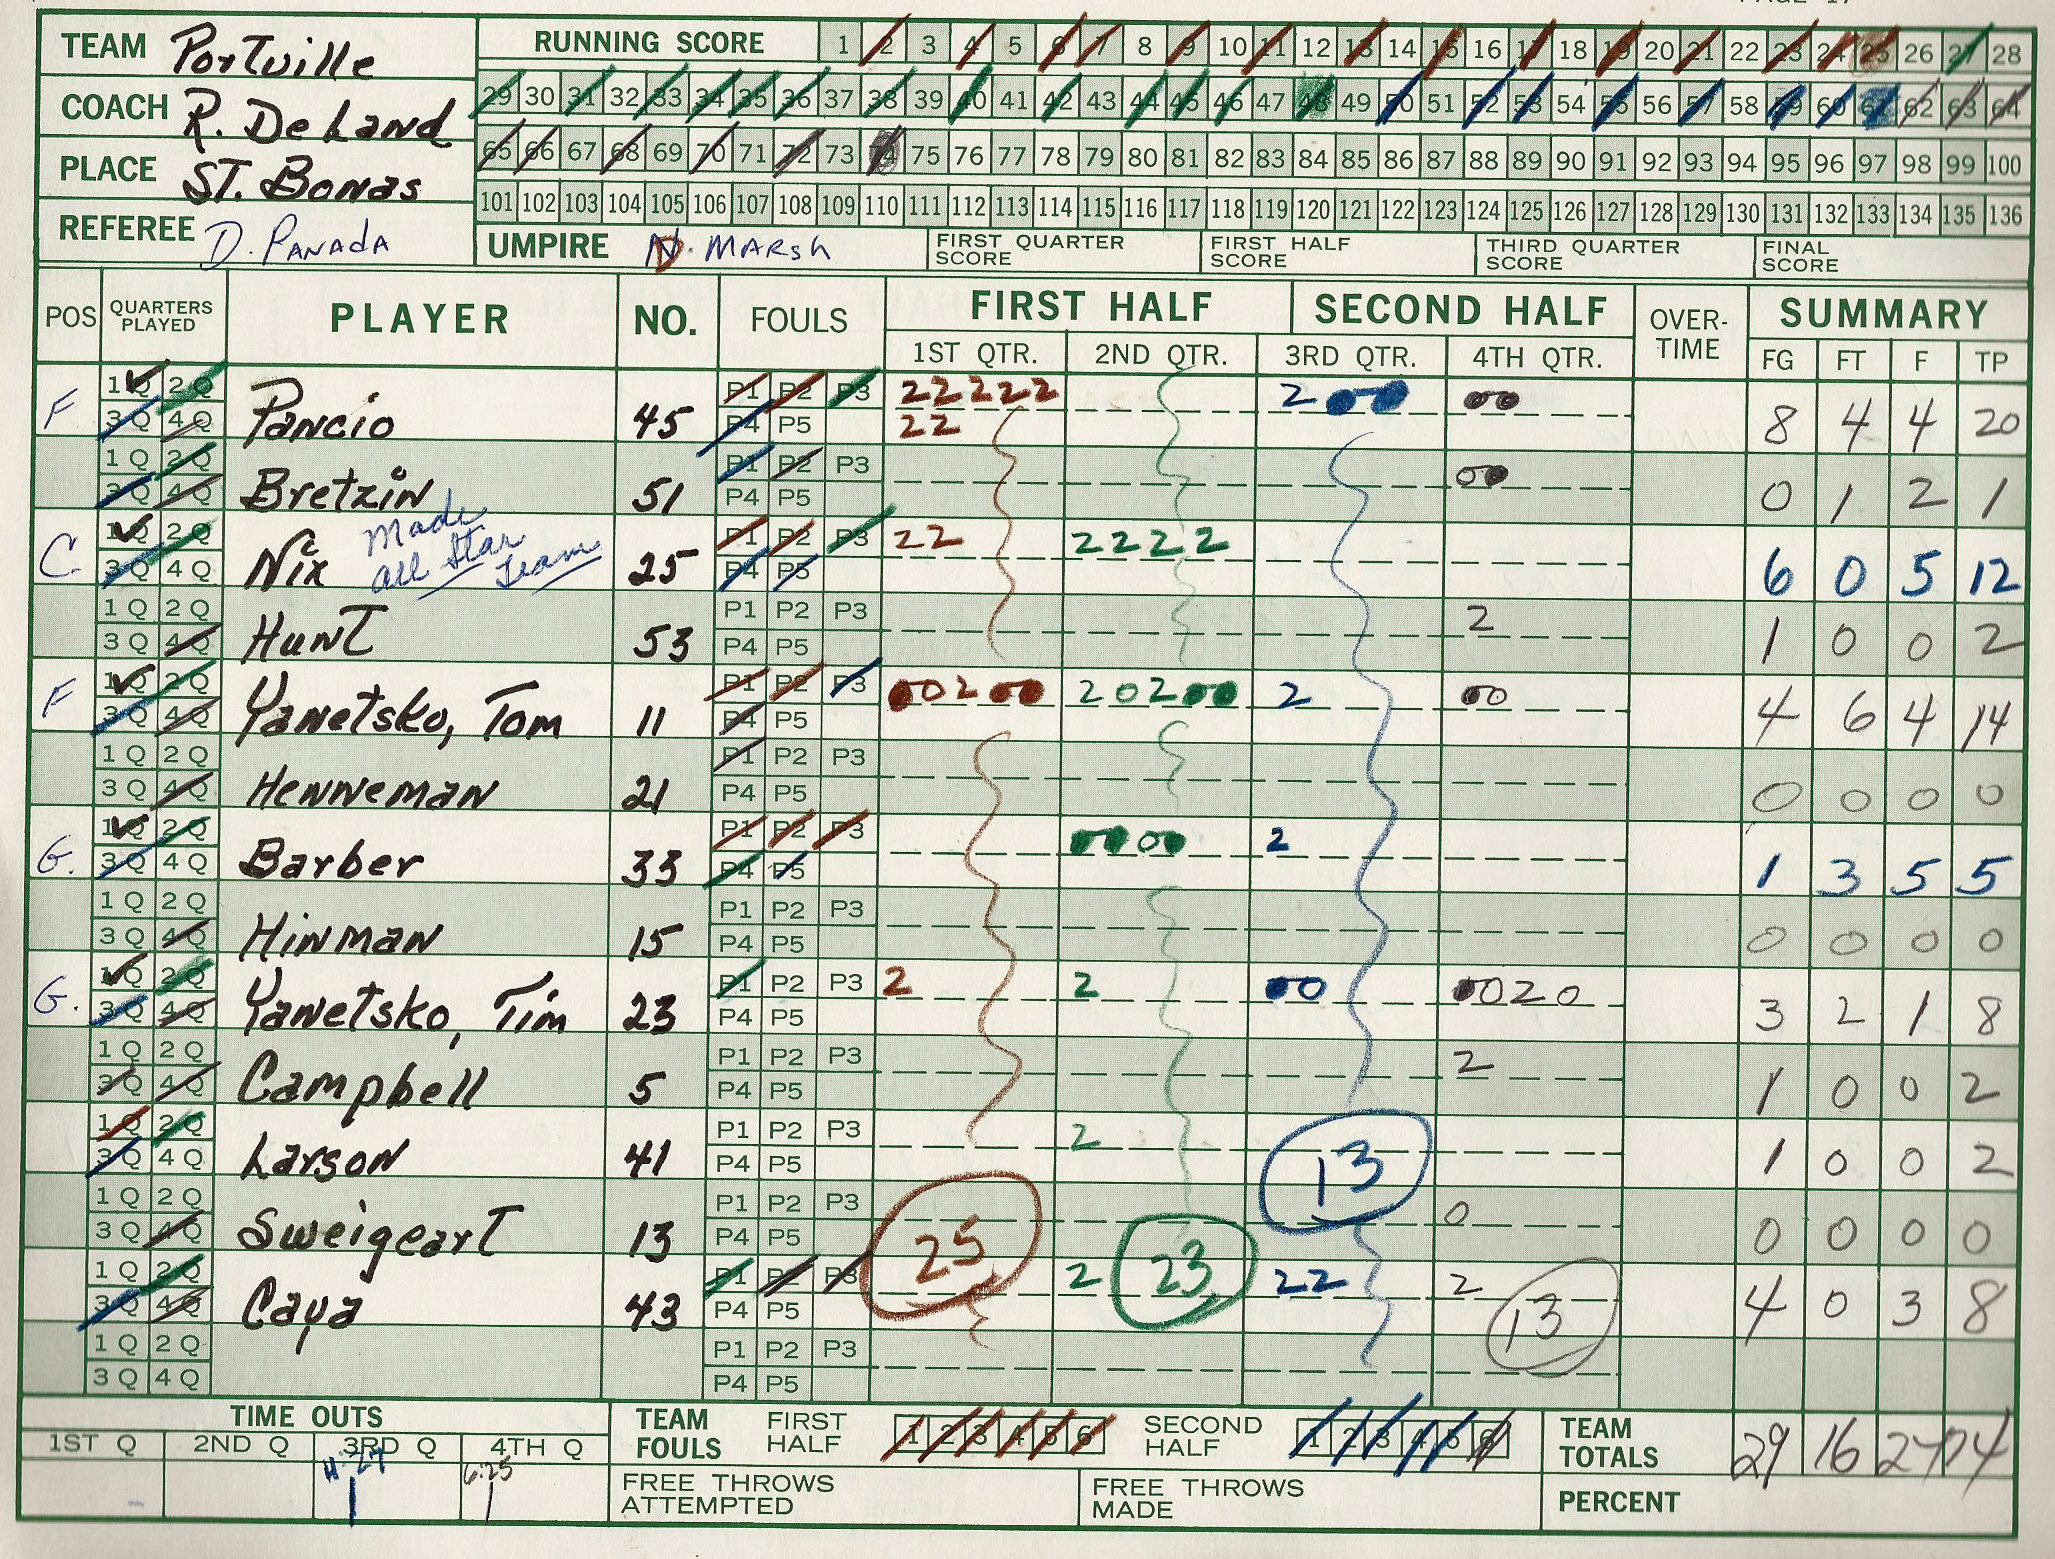 PAGE 17
TEAM Portville
COACH R. DeLand
PLACE ST. Bonas
REFEREE D. PANADA
RUNNING SCORE 1 2 3 4 5 6 7 8 9 10 11 12 13 14 15 16 17 18 19 20 21 22 23 24 25 26 27 28
29 30 31 32 33 34 35 36 37 38 39 40 41 42 43 44 45 46 47 48 49 50 51 52 53 54 55 56 57 58 59 60 61 62 63 64
65 66 67 68 69 70 71 72 73 74 75 76 77 78 79 80 81 82 83 84 85 86 87 88 89 90 91 92 93 94 95 96 97 98 99 100
101 102 103 104 105 106 107 108 109 110 111 112 113 114 115 116 117 118 119 120 121 122 123 124 125 126 127 128 129 130 131 132 133 134 135 136
UMPIRE N. MARSH
FIRST QUARTER SCORE
FIRST HALF SCORE
THIRD QUARTER SCORE
FINAL SCORE
POS QUARTERS PLAYED PLAYER NO. FOULS FIRST HALF SECOND HALF OVER-TIME SUMMARY
1ST QTR. 2ND QTR. 3RD QTR. 4TH QTR. FG FT F TP
F 1Q 2Q 3Q 4Q Pancio 45 P1 P2 P3 P4 P5 22222 22 2 00 00 8 4 4 20
1Q 2Q 3Q 4Q Bretzin 51 P1 P2 P3 P4 P5 00 0 1 2 1
C. 1Q 2Q 3Q 4Q Nix Made All Star Team 25 P1 P2 P3 P4 P5 22 2222 6 0 5 12
1Q 2Q 3Q 4Q Hunt 53 P1 P2 P3 P4 P5 2 1 0 0 2
F 1Q 2Q 3Q 4Q Yanetsko, Tom 11 P1 P2 P3 P4 P5 00200 20200 2 00 4 6 4 14
1Q 2Q 3Q 4Q Henneman 21 P1 P2 P3 P4 P5 0 0 0 0
G. 1Q 2Q 3Q 4Q Barber 33 P1 P2 P3 P4 P5 0000 2 1 3 5 5
1Q 2Q 3Q 4Q Hinman 15 P1 P2 P3 P4 P5 0 0 0 0
G. 1Q 2Q 3Q 4Q Yanetsko, Tim 23 P1 P2 P3 P4 P5 2 2 00 0020 3 2 1 8
1Q 2Q 3Q 4Q Campbell 5 P1 P2 P3 P4 P5 2 1 0 0 2
1Q 2Q 3Q 4Q Larson 41 P1 P2 P3 P4 P5 2 13 1 0 0 2
1Q 2Q 3Q 4Q Sweigeart 13 P1 P2 P3 P4 P5 25 0 0 0 0 0
1Q 2Q 3Q 4Q Caya 43 P1 P2 P3 P4 P5 2 23 22 2 13 4 0 3 8
1Q 2Q 3Q 4Q P1 P2 P3 P4 P5
TIME OUTS
1ST Q 2ND Q 3RD Q 4TH Q
4:27 6:25
TEAM FOULS FIRST HALF 1 2 3 4 5 6 SECOND HALF 1 2 3 4 5 6
FREE THROWS ATTEMPTED
FREE THROWS MADE
TEAM TOTALS 29 16 27 74
PERCENT